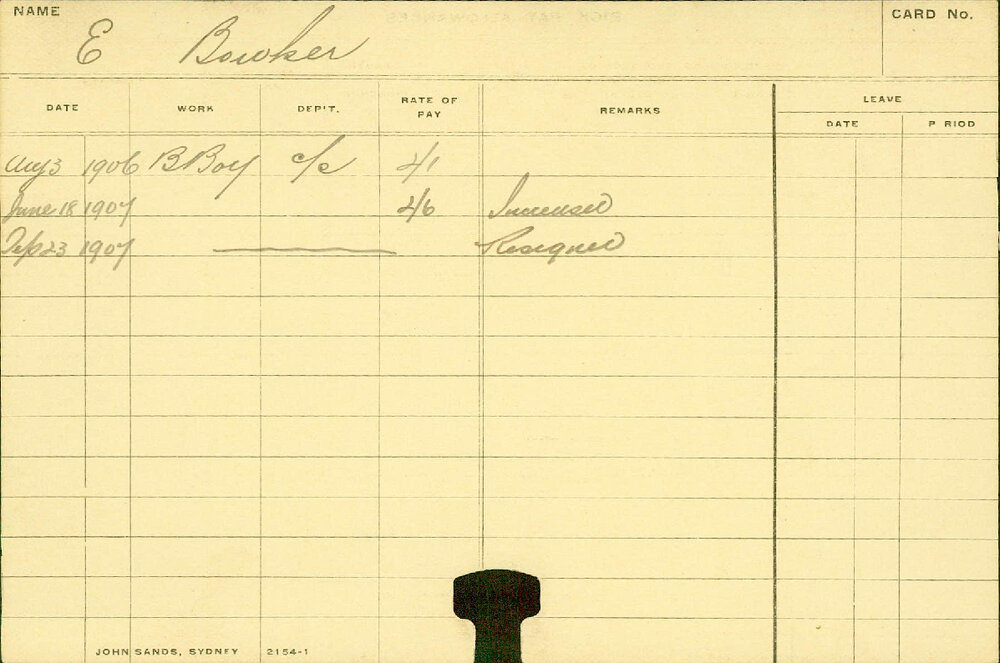 NAME E Bowker CARD No.
DATE WORK DEP'T. RATE OF PAY REMARKS LEAVE
DATE P RIOD
Aug 3 1906 B Boy c/s 2/1
June 18 1907 2/6 Increased
Sep 23 1907 Resigned
JOHN SANDS, SYDNEY 2154-1